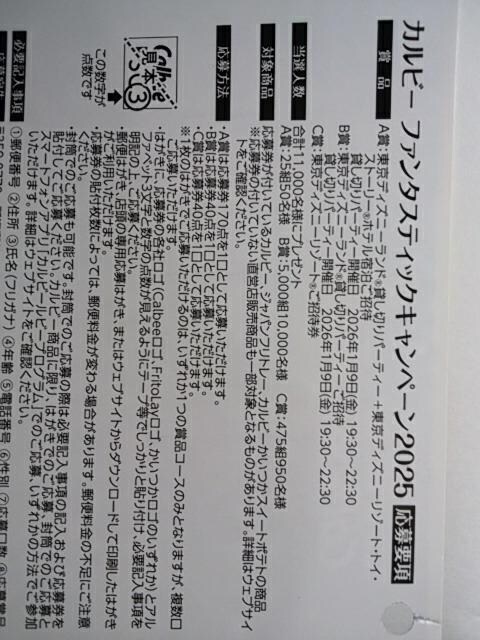 カルビー ファンタスティックキャンペーン2025 応募要項
賞品
A賞：東京ディズニーランド®貸し切りパーティー＋東京ディズニーリゾート・トイ・
ストーリー®ホテル宿泊ご招待
貸し切りパーティー開催日 2026年1月9日(金) 19:30～22:30
B賞：東京ディズニーランド®貸し切りパーティーご招待
貸し切りパーティー開催日 2026年1月9日(金) 19:30～22:30
C賞：東京ディズニーリゾート®ご招待券
当選人数
合計11,000名様にプレゼント
A賞：25組50名様 B賞：5,000組10,000名様 C賞：475組950名様
対象商品
応募券が付いているカルビー、ジャパンフリトレー、カルビーかいつかスイートポテトの商品
※応募券の付いていない直営店販売商品も一部対象となるものがあります。詳細はウェブサイ
トをご確認ください。
応募方法
・A賞は応募券170点を1口として応募いただけます。
・B賞は応募券40点を1口として応募いただけます。
・C賞は応募券40点を1口として応募いただけます。
※1枚のはがきでご応募いただけるのは、いずれか1つの賞品コースのみとなりますが、複数口
ご応募いただけます。
・はがきに、応募券の各社ロゴ(Calbeeロゴ、FritoLayロゴ、かいつかロゴのいずれか)とアル
ファベット3文字と数字の点数が見えるようにテープ等でしっかりと貼り付け、必要記入事項を
明記の上、ご応募ください。
・郵便はがき・店頭の専用応募はがき、またはウェブサイトからダウンロードして印刷したはがき
がご利用いただけます。
・応募券の貼付枚数によっては、郵便料金が変わる場合があります。郵便料金の不足にご注意
ください。
・封筒でのご応募も可能です。封筒でのご応募の際は必要記入事項の記入、および応募券を
貼付してご応募ください。カルビー商品に限り、はがきでのご応募、封筒でのご応募と
スマートフォンアプリ「カルビー ルビープログラム」でのご応募、いずれかの方法でご参加
いただけます。詳細はウェブサイトをご確認ください。
Calbee
見本
3
この数字が
点数です
必要記入事項
①郵便番号 ②住所 ③氏名(フリガナ) ④年齢 ⑤電話番号 ⑥性別 ⑦応募口数 ⑧応募賞品